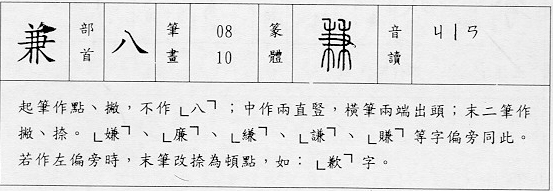 兼 部首 八 筆畫 08 10 篆體 音讀 ㄐㄧㄢ
起筆作點、撇，不作「八」；中作兩直豎，橫筆兩端出頭；末二筆作
撇、捺。「嫌」、「廉」、「縑」、「謙」、「賺」等字偏旁同此。
若作左偏旁時，末筆改捺為頓點，如：「歉」字。